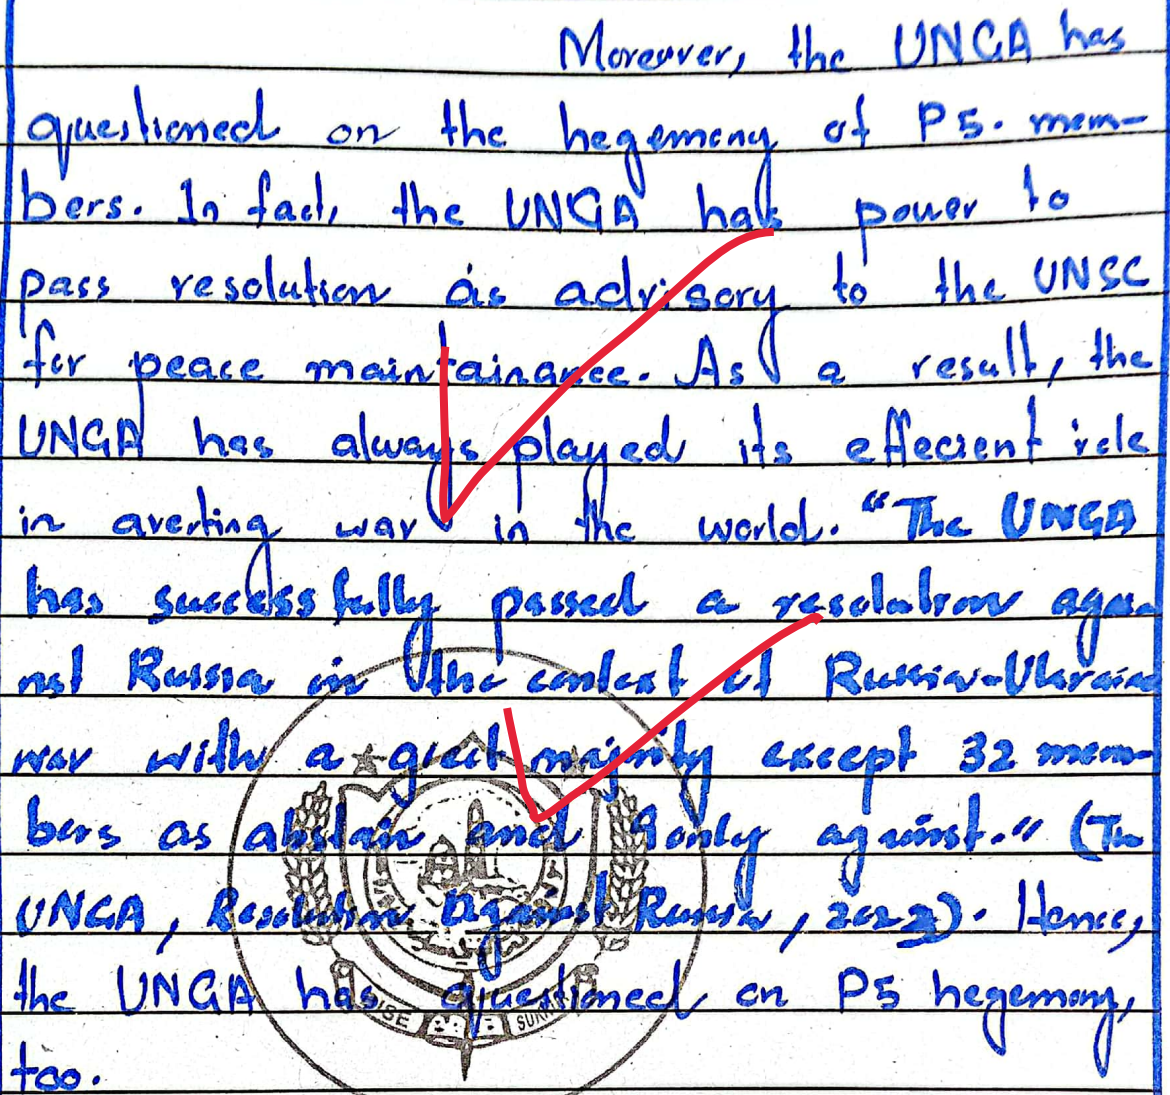 Moreover, the UNGA has
questioned on the hegemony of P5. mem-
bers. In fact, the UNGA has power to
pass resolution as advisory to the UNSC
for peace maintainance. As a result, the
UNGA has always played its effecient role
in averting war in the world. "The UNGA
has successfully passed a resolution agai-
nst Russia in the context of Russia-Ukraine
war with a great majority except 32 mem-
bers as abstain and 9 only against." (The
UNGA, Resolution Against Russia, 2023). Hence,
the UNGA has questioned on P5 hegemony,
too.